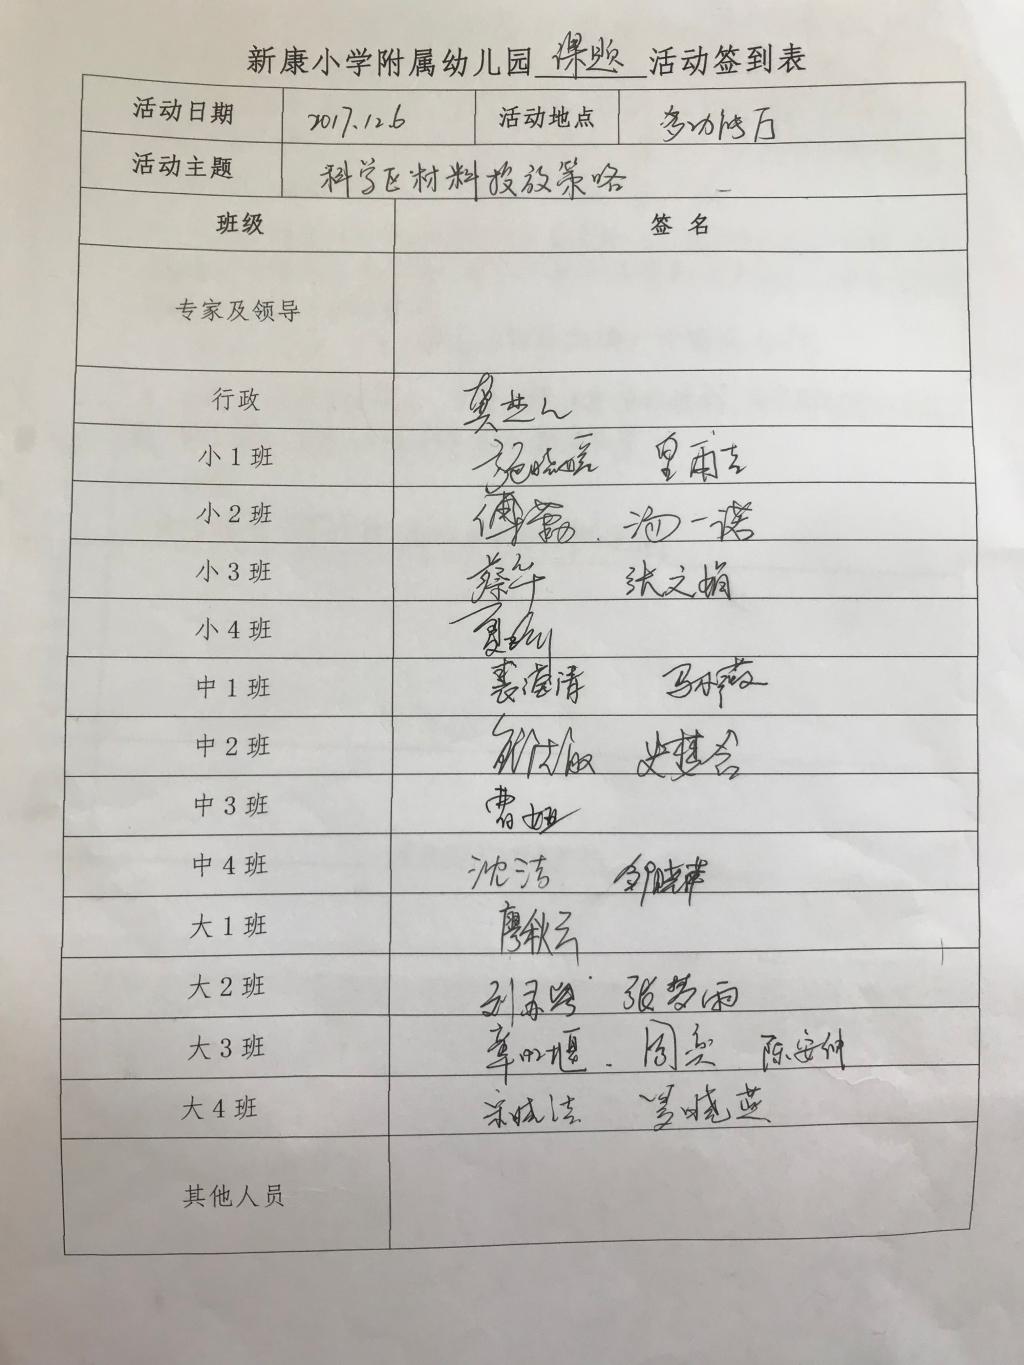 新康小学附属幼儿园 课题 活动签到表
活动日期 2017.12.6 活动地点 多功能厅
活动主题 科学区材料投放策略
班级 签名
专家及领导
行政
小1班 施晓
小2班 傅 汤一诺
小3班 蔡华 张文娟
小4班 夏
中1班 裘滢清 马小薇
中2班 史梦
中3班 曹妞
中4班 沈洁 邹晓
大1班 廖秋云
大2班 刘 张梦雨
大3班 章 周奕 陈安
大4班 宋晓洁 罗晓燕
其他人员